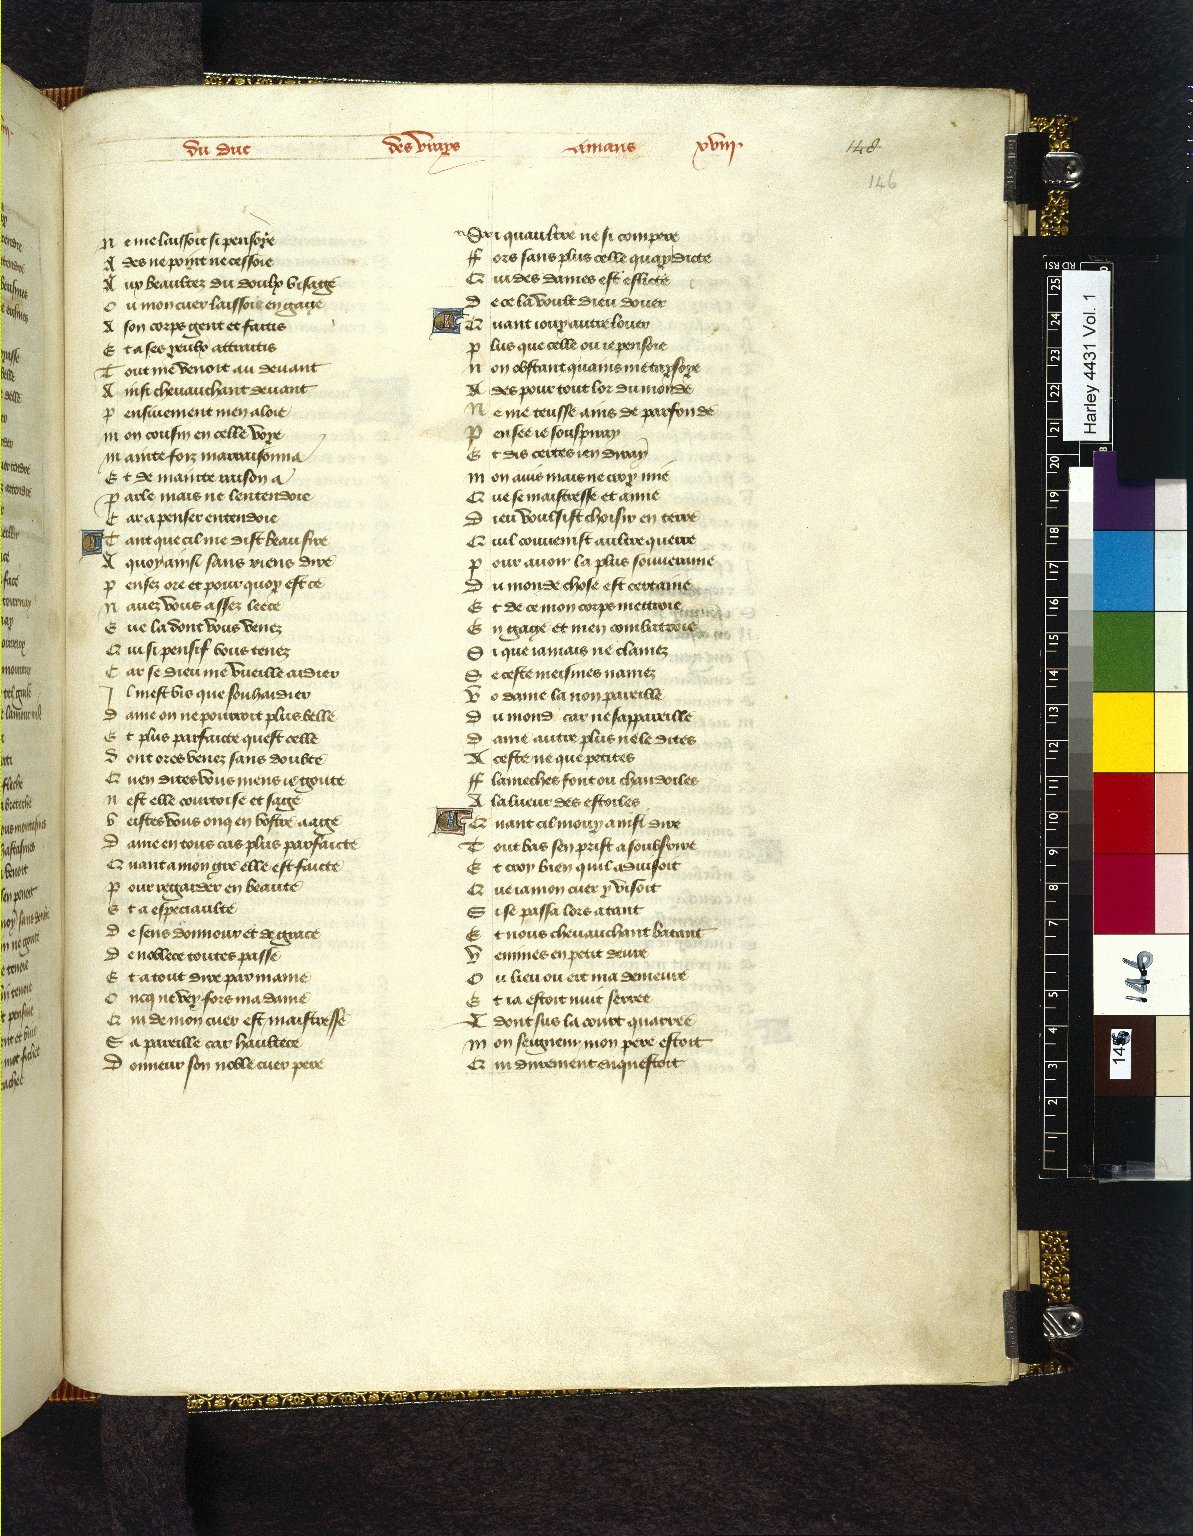 du duc des vrays amans xviii.
148
146
N e me laissoit si pensoye
A des ne point ne cessoie
A ux beaultez du doulx visage
O u mon cuer laissoie en gaige
A son corps gent et faitis
E t a ses yeulx attraitis
T out me venoit au devant
A insi chevauchant devant
P ensivement men aloie
M on cousin en celle voye
M ainte foiz marraisonna
E t de mainte raison a
P arle mais ne lentendoie
C ar a penser entendoie
T ant que cil me dist beau sire
A quoy ainsi sans riens dire
P ensez ore et pour quoy est ce
N avez vous assez leece
E ue la dont vous venez
Q ui si pensif vous tenez
C ar se dieu me vueille aidier
I l mest vis que souhaidier
D ame on ne pourroit plus belle
E t plus parfaicte quest celle
D ont ores venez sans doubte
Q uen dites vous mens ie goute
N est elle courtoise et sage
V eistes vous onq en vostre aage
D ame en tous cas plus parfaicte
Q uant a mon gre elle est faicte
P our regarder en beaute
E t a especiaulte
D e sens donnour et de grace
D e noblece toutes passe
E t a tout dire par mame
O ncq ne vey fors ma dame
Q ui de mon cuer est maistresse
S a pareille car haultece
D onneur son noble cuer pere
Si quaultre ne si compere
ff ors sans plus celle quay dicte
Q ui des dames est eslicte
D e ce la voult dieu douer
Q uant iouy autre louer
P lus que celle ou ie pensoie
N on obstant quains me taysoye
A des pour tout lor du monde
N e me teusse ains de parfonde
P ensee ie souspiray
E t dis certes ien diray
M on avis mais ne croy mie
Q ue se maistresse et amie
D ieu voulsist choisir en terre
Q uil convenist aultre querre
P our avoir la plus souveraine
D u monde chose est certaine
E t de ce mon corps mettroie
E n gage et men combatroie
S i que iamais ne clamez
S e ceste meismes namez
V o dame la non pareille
D u mond car ne sappareille
D ame autre plus ne le dites
A ceste ne que petites
ff lameches font ou chandoiles
A la lueur des estoiles
Q uant cil mouy ainsi dire
T out bas sen prist a soubsrire
E t croy bien quil advisoit
Q ue ia mon cuer y visoit
S i se passa lors a tant
E t nous chevauchant batant
V enimes en petit deure
O u lieu ou ert ma demeure
E t ia estoit nuit serree
A dont sus la court quarree
M on seigneur mon pere estoit
Q ui durement enquestoit
Harley 4431 Vol. 1
146
148